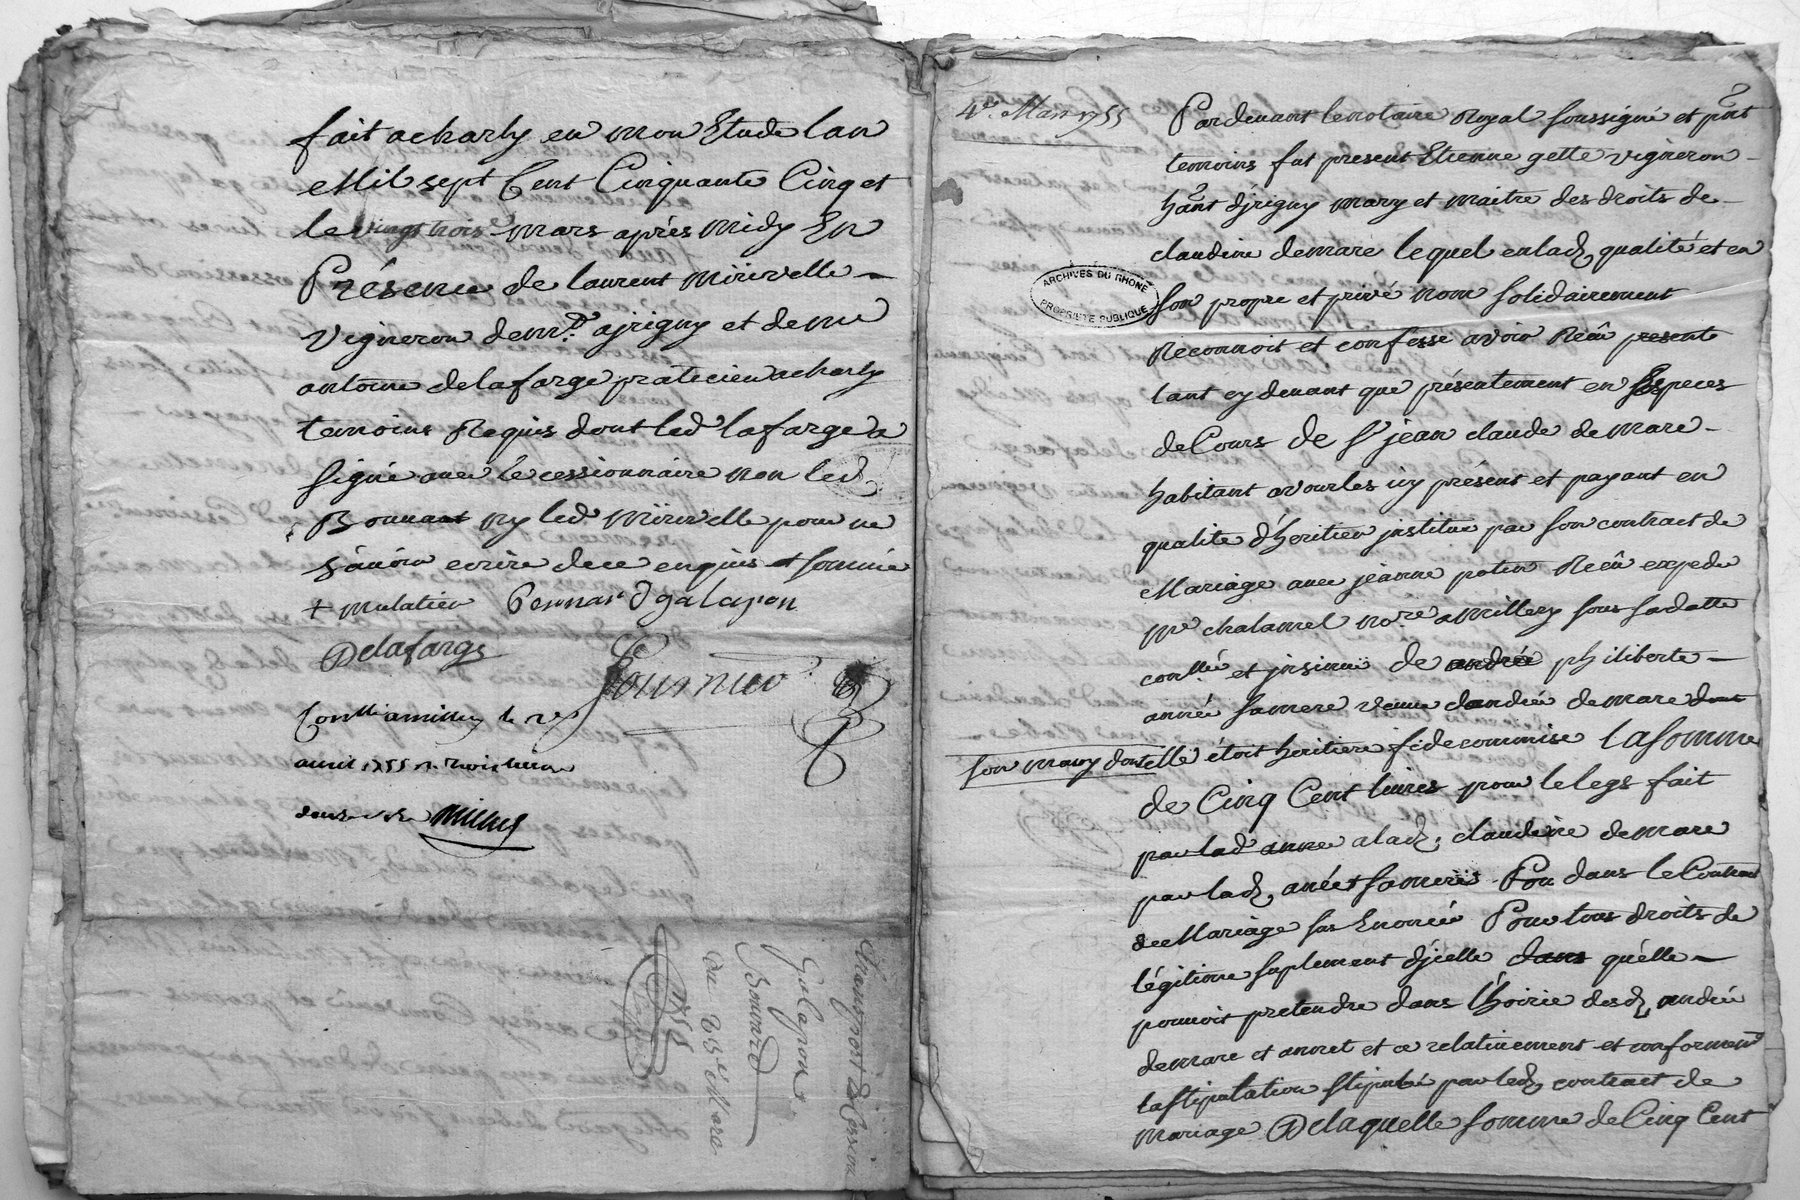 fait a charly en mon Etude lan
Mil sept Cent Cinquante Cinq et
le vingt trois mars après midy En
Présence de laurent mirivelle
vigneron dem.t a jrigny et de me
antoine delafarge praticien a charly
temoins Requis dont led lafarge a
signé avec le cessionnaire non led
Bonnart ny led mirivelle pour ne
sçavoir ecrire de ce enquis et sommé
+ mulatier Bennard galayon
Delafarge
Fournier
a millery le
avril 1755 R trois livres
douze
Champort & Cession
Galayon
Bonnard
du 23e Mars
1755
4e Mars 1755
2
Pardevant le notaire Royal soussigné et pnt
temoins fut present Etienne gette vigneron
hant d'jrigny mary et maitre des droits de
claudine demare lequel en lad qualité et en
son propre et privé nom solidairement
Reconnoit et confesse avoir Recû presente
tant cy devant que présentement en Especes
de Cours de Sr jean claude demare
habitant a vourles icy présent et payant en
qualité d'heritier jnstitué par son contract de
Mariage avec jeanne potin Recû expedu
me chalamel nore a millery sous sa datte
collé et jnsinué de andrée philiberte
année sa mere veuve d'andrée demare dont
son mary dont elle etoit heritiere fidecommise la somme
de Cinq Cent livres pour le legs fait
par lad annee a lad. claudine demare
par lad anée sa mere Pon dans le Contract
de Mariage sus Enoncé Pour tous droits de
légitime suplement d'jcelle dans qu'elle
pouvoit pretendre dans l'hoirie desd andrée
demare et annet et ce relativement et conforment
la stipulation stipulé par led contract de
mariage De laquelle somme de Cinq Cent
ARCHIVES DU RHONE
PROPRIETE PUBLIQUE